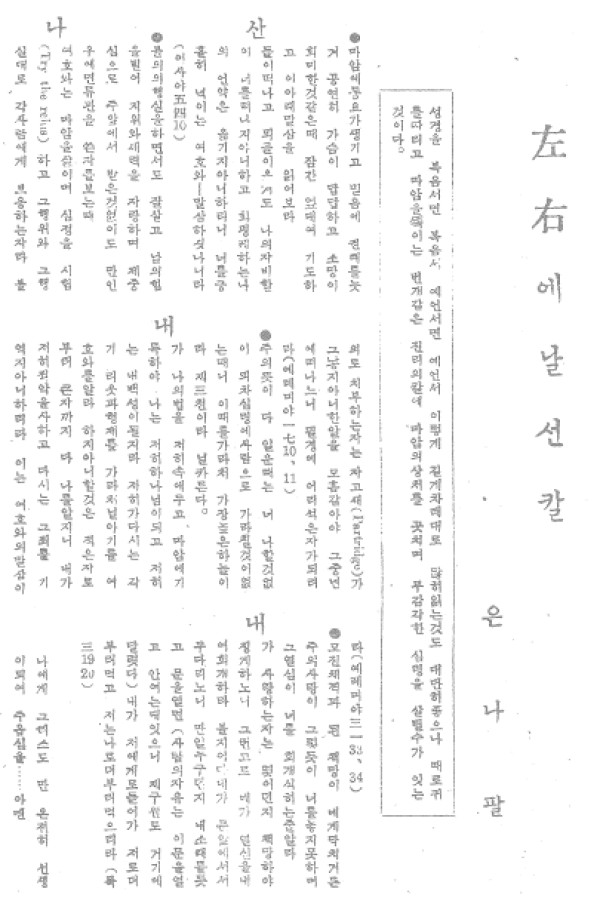 左右에 날선 칼
은 나 팔
성경을 복음서면 복음서 예언서면 예언서 이렇게 길게차례대로 많히읽는것도 대단히좋으나 때로귀
를따리고 마암을 는 번개갇은 진리의칼에 마암의상처를 곳치며 무감각한 심령을 살 수가 잇는
것이다。
산
●마암에통요가생기고 믿음에 권태를늣
거 공연히 가슴이 답답하고 소망이
희미할것같은때 잠간 업대여 기도하
고 이아래말삼을 읽어보라
들이떠나고 뫼들이 도 나의자비할
이 너를떠나지아니하고 화평케하는나
의 언약은 옴기지아니하리니 너를긍
휼히 넉이는 여호와ㅣ말삼하셧나니라
(이사야五四10)
나
●불의의행실을하면서도 잘살고 남의힘
을빌어 지위와세력을 자랑하며 제중
심으로 주앞에서 받은것없이도 만인
우에면류관을 쓴자를보는때
여호와는 마암을살피며 심정을 시험
(Try the reins) 하고 그행위와 그행
실대로 각사람에게 보응하는자라 불
의로 치부하는자는 자고새(Partridge)가
그놓지아니한알을 모흠갇아야 그중년
에떠나느니 필경에 어리석은자가되리
라(예레미야一七10、11)
내
●주의뜻이 다 일운때는 너 나할것없
이 심령에사람으로 가라칠것이없
는때니 이때를가라처 가장좋은하늘이
라 제三천이라 닐카른다。
가 나의법을 저히속에두고 마암에기
록하야 나는 저히하나님이되고 저히
는 내백성이될지라 저히가다시는 각
기 리웃과형제를 가라처닐아기를 여
호와를알라 하지아니할것은 적은자로
부터 큰자까지 다 나를알지니 내가
저히죄악을사하고 다시는 그죄를 기
억지아니하리라 이는 여호와의말삼이
라(예레미야三一33、34)
내
●모진채찍과 된 책망이 네게닥처거든
주의사랑이 그렇듯이 너를놓지못하며
그열심이 너를 회개식히는줄알라
가 사랑하는자는 몇어던지 책망하야
징계하노니 그런고로 네가 열심을내
여회개하라 볼지어다내가 문앞에서서
두다리노니 만일누구던지 내소래를듯
고 문을열면 (사람의자유는 이문을열
고 안여는데잇으니 제구원도 거기에
달렷다) 내가 저에게로들어가 저로더
부터먹고 저는나로더부터먹으리라 (록
三19 20)
나에게 그리스도 만 온전히 선생
이되여 주옵심을……아멘